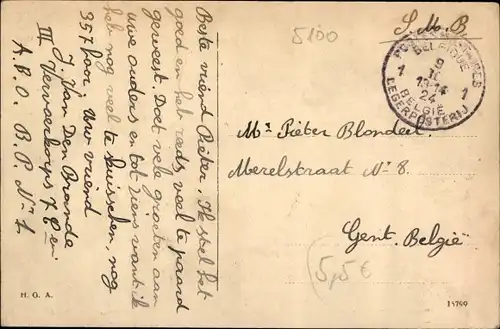 Beste vriend Pieter. Ik stel het
goed en heb reeds veel te paard
geweest. Doet vele groeten aan
uwe ouders en tot ziens want ik
heb nog veel te kuisschen, nog
357 hoor. Uw vriend
J. Van Den Brande
III Vervoerkorps 7
A. B. O. B. P. Nº 1
H. G. A.
5100
S. M. B.
POSTES MILITAIRES
BELGIQUE
9
10
13-14
24
1 1
BELGIË
LEGERPOSTERIJ
Mr Pieter Blondeel
Merelstraat Nº 8.
Gent. België
5,5€
15799